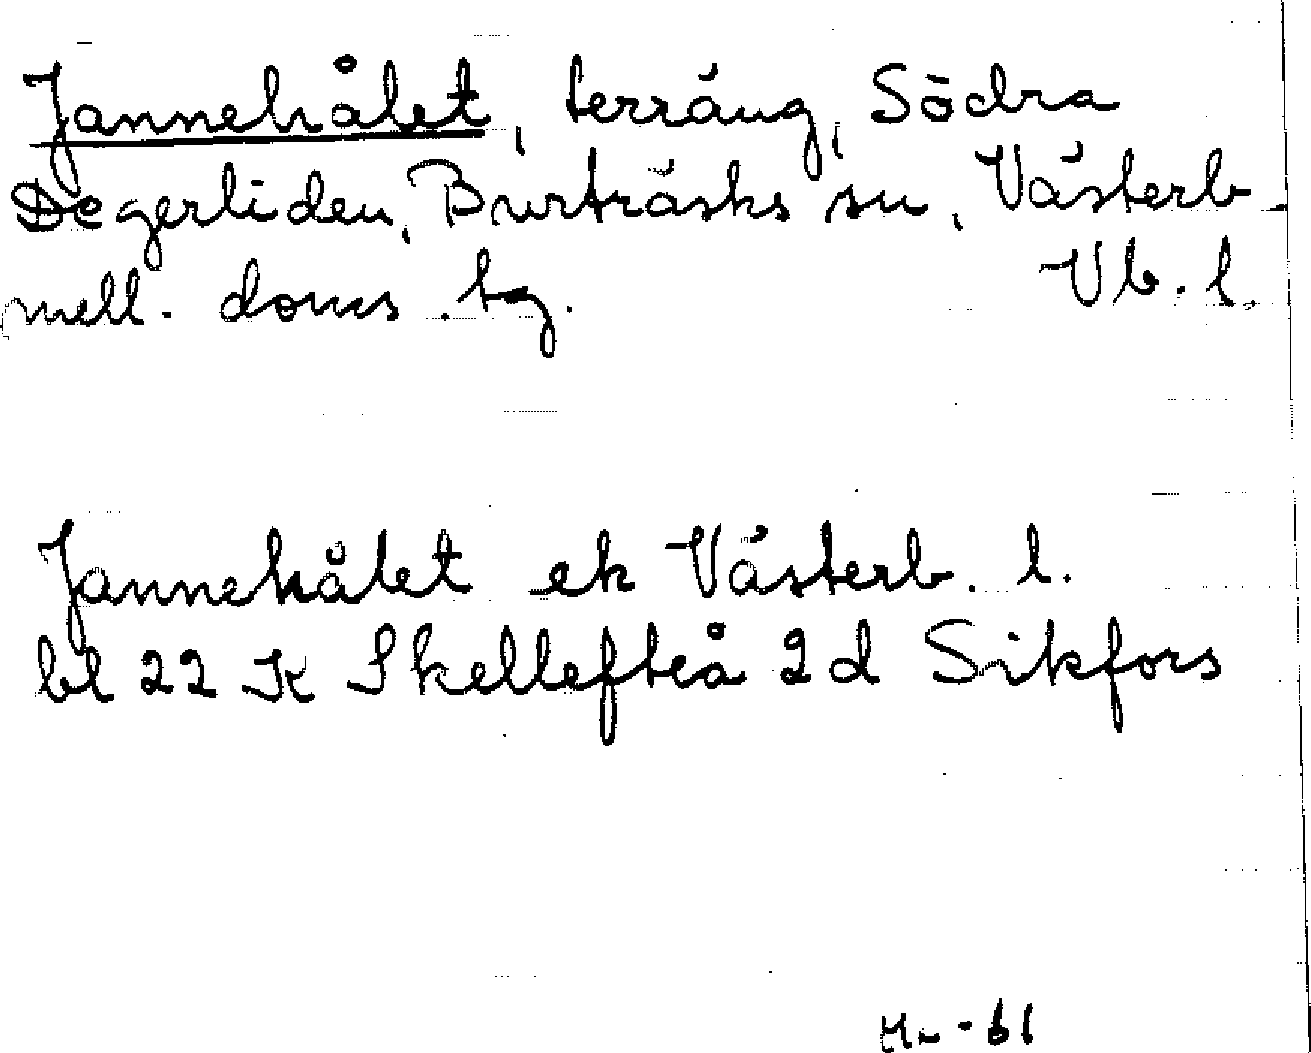 Jannehålet, terräng, Södra
Degerliden, Burträsks sn, Västerb.
mell. doms. bg. Vb. l.
Jannehålet ek Västerb. l.
bl 22 K Skellefteå 2d Sikfors
-61